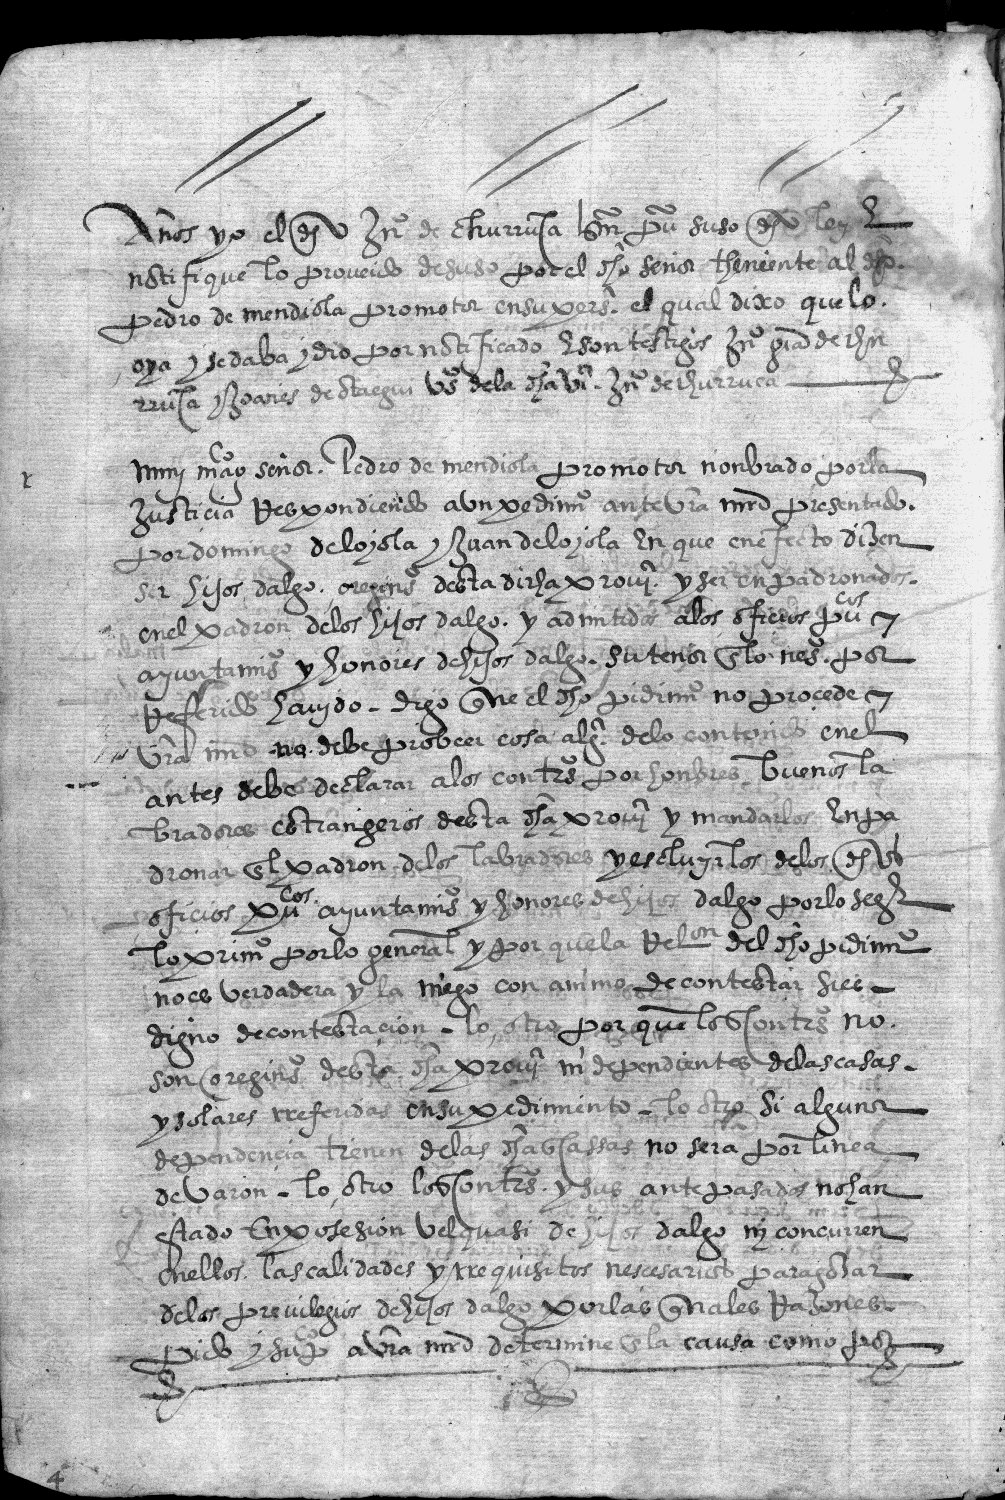 años yo el dho Jno de churruca ssno pu suso dho ley E
notifique lo proveido desuso por el dho señor theniente al dho
pedro de mendiola promotor en su persa el qual dixo que lo
oya y se daba y dio por notificado testigos Jno gra de chu
rruca y Joanes de otaegui vos de la dha va Jno de churruca
muy magco señor. Pedro de mendiola promotor nonbrado por la
Justicia Respondiendo a un pedimio ante vra mrd presentado
por domingo de loyola y Juan de loyola En que en efecto dizen
ser hijos dalgo oreginos desta dicha provia y ser enpadronados
en el padron de los hijos dalgo y admitidos a los oficios pucos y
ayuntamios y honores de hijos dalgo su tenor qlo neso por
Referido havido digo que el dho pidimio no procede y
vra mrd no debe probeer cosa alga de lo contenido en el
antes debe declarar a los contros por honbres buenos la
bradores estrangeros desta dha provia y mandarlos Enpa
dronar el padron de los labradores y escluyrlos de los dhos
oficios pucos ayuntamios y honores de hijos dalgo por lo segte
lo primo por lo general y por que la Relon del dho pidimio
no es verdadera y la niego con animo de contestar si es
digno de contestacion lo otro por que los contros no
son oreginos desta dha provia ni dependientes de las casas
y solares rreferidas en su pedimiento lo otro si alguna
dependencia tienen de las dhas cassas no sera por linea
de varon lo otro los contros y sus antepasados no han
estado En posesion vel quasi de hijos dalgo ni concurren
en ellos las calidades y rrequisitos nescesarios para gozar
de los previlegios de hijos dalgo por las quales Razones
pido y supco a vra mrd determine la causa como por
4